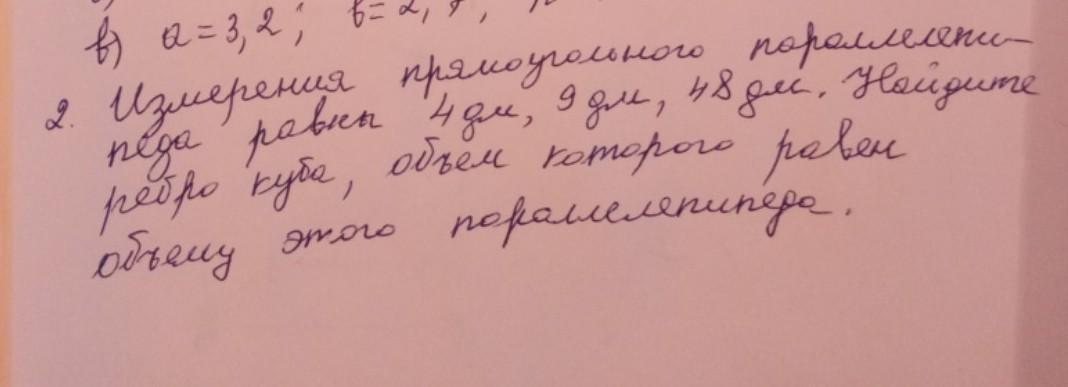 в) a = 3,2; в = 2,
2. Измерения прямоугольного параллелепи-
педа равны 4 дм, 9 дм, 48 дм. Найдите
ребро куба, объем которого равен
объему этого параллелепипеда.